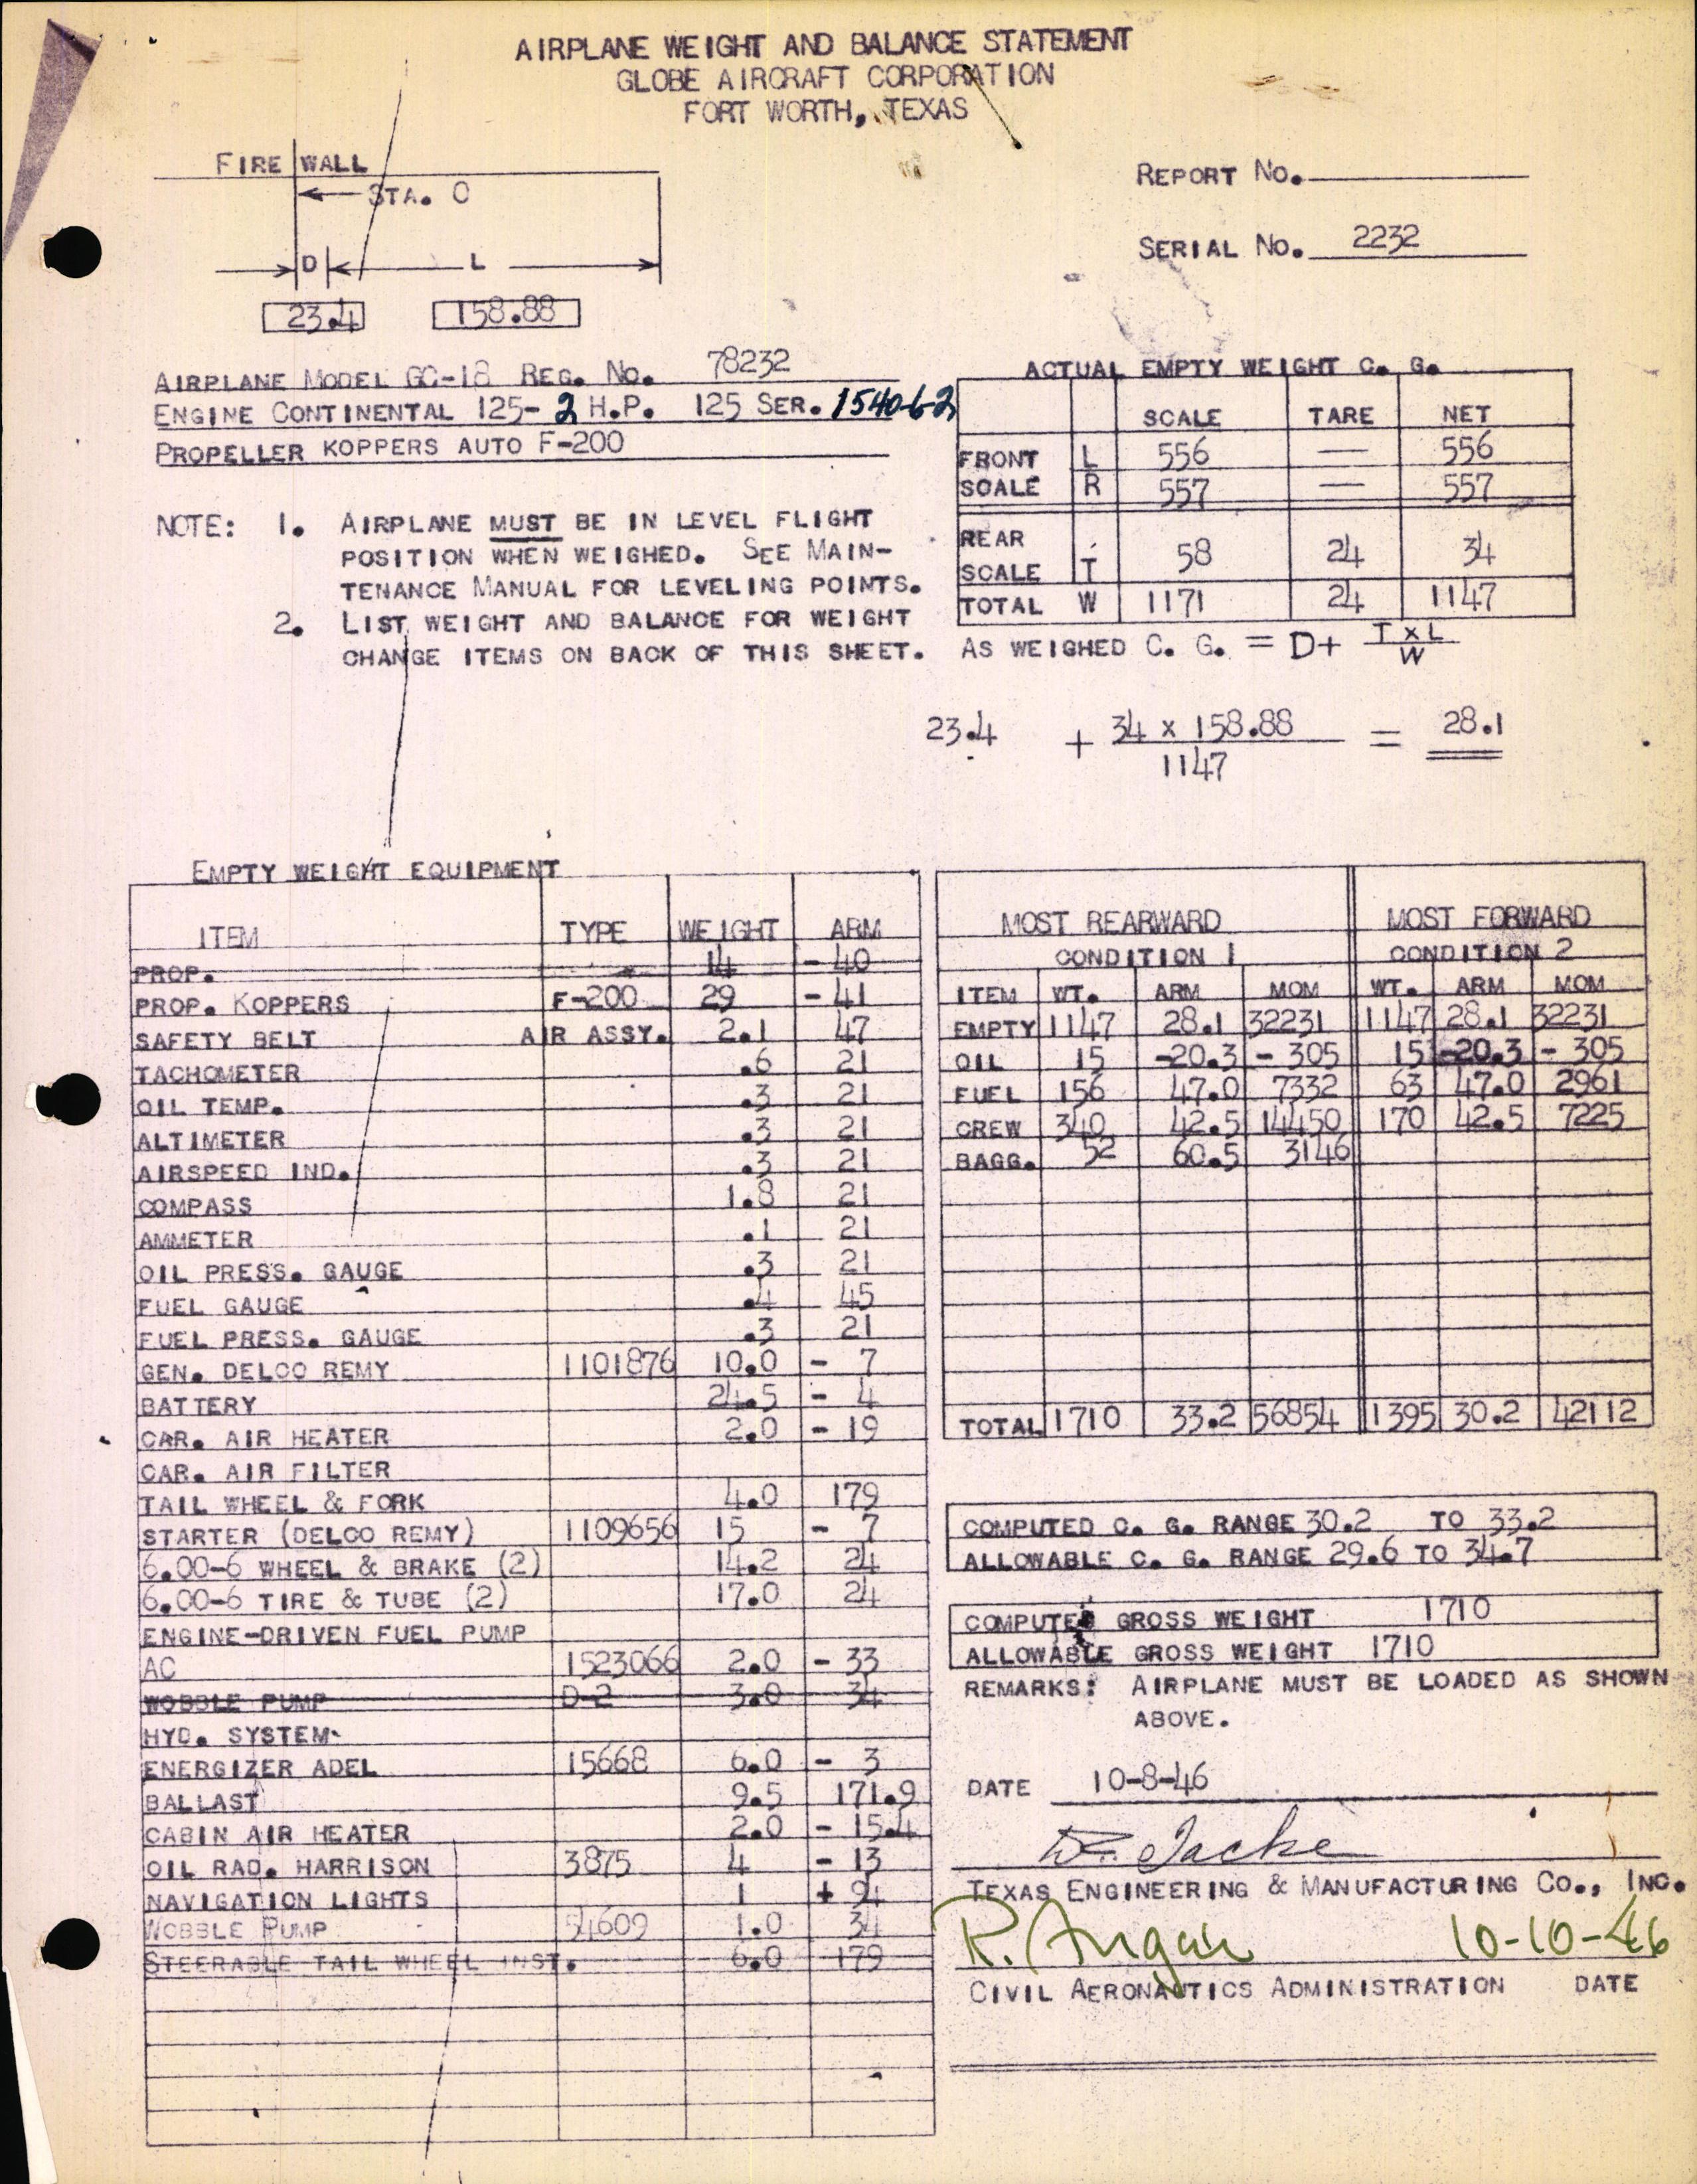 AIRPLANE WEIGHT AND BALANCE STATEMENT
GLOBE AIRCRAFT CORPORATION
FORT WORTH, TEXAS
FIRE WALL
STA. 0
D L
23.4 158.88
REPORT NO.
SERIAL NO. 2232
AIRPLANE MODEL GC-1B REG. NO. 78232
ENGINE CONTINENTAL 125-2 H.P. 125 SER. 15406-2
PROPELLER KOPPERS AUTO F-200
NOTE: 1. AIRPLANE MUST BE IN LEVEL FLIGHT
POSITION WHEN WEIGHED. SEE MAIN-
TENANCE MANUAL FOR LEVELING POINTS.
2. LIST WEIGHT AND BALANCE FOR WEIGHT
CHANGE ITEMS ON BACK OF THIS SHEET.
ACTUAL EMPTY WEIGHT C. G.
SCALE TARE NET
FRONT L 556 — 556
SCALE R 557 — 557
REAR
SCALE T 58 24 34
TOTAL W 1171 24 1147
AS WEIGHED C. G. = D+ T x L
W
23.4 + 34 x 158.88 = 28.1
1147
EMPTY WEIGHT EQUIPMENT
ITEM TYPE WEIGHT ARM
PROP. 14 - 40
PROP. KOPPERS F-200 29 - 41
SAFETY BELT AIR ASSY. 2.1 47
TACHOMETER .6 21
OIL TEMP. .3 21
ALTIMETER .3 21
AIRSPEED IND. .3 21
COMPASS 1.8 21
AMMETER .1 21
OIL PRESS. GAUGE .3 21
FUEL GAUGE .4 45
FUEL PRESS. GAUGE .3 21
GEN. DELCO REMY 1101876 10.0 - 7
BATTERY 24.5 - 4
CAR. AIR HEATER 2.0 - 19
CAR. AIR FILTER
TAIL WHEEL & FORK 4.0 179
STARTER (DELCO REMY) 1109656 15 - 7
6.00-6 WHEEL & BRAKE (2) 14.2 24
6.00-6 TIRE & TUBE (2) 17.0 24
ENGINE-DRIVEN FUEL PUMP
AC 1523066 2.0 - 33
WOBBLE PUMP D-2 3.0 34
HYD. SYSTEM-
ENERGIZER ADEL 15668 6.0 - 3
BALLAST 9.5 171.9
CABIN AIR HEATER 2.0 - 15.4
OIL RAD. HARRISON 3875 4 - 13
NAVIGATION LIGHTS 1 + 94
WOBBLE PUMP 54609 1.0 34
STEERABLE TAIL WHEEL INST. 6.0 179
MOST REARWARD MOST FORWARD
CONDITION 1 CONDITION 2
ITEM WT. ARM MOM WT. ARM MOM
EMPTY 1147 28.1 32231 1147 28.1 32231
OIL 15 -20.3 - 305 15 -20.3 - 305
FUEL 156 47.0 7332 63 47.0 2961
CREW 340 42.5 14450 170 42.5 7225
BAGG. 52 60.5 3146
TOTAL 1710 33.2 56854 1395 30.2 42112
COMPUTED C. G. RANGE 30.2 TO 33.2
ALLOWABLE C. G. RANGE 29.6 TO 34.7
COMPUTED GROSS WEIGHT 1710
ALLOWABLE GROSS WEIGHT 1710
REMARKS: AIRPLANE MUST BE LOADED AS SHOWN
ABOVE.
DATE 10-8-46
TEXAS ENGINEERING & MANUFACTURING CO., INC.
10-10-46
CIVIL AERONAUTICS ADMINISTRATION DATE